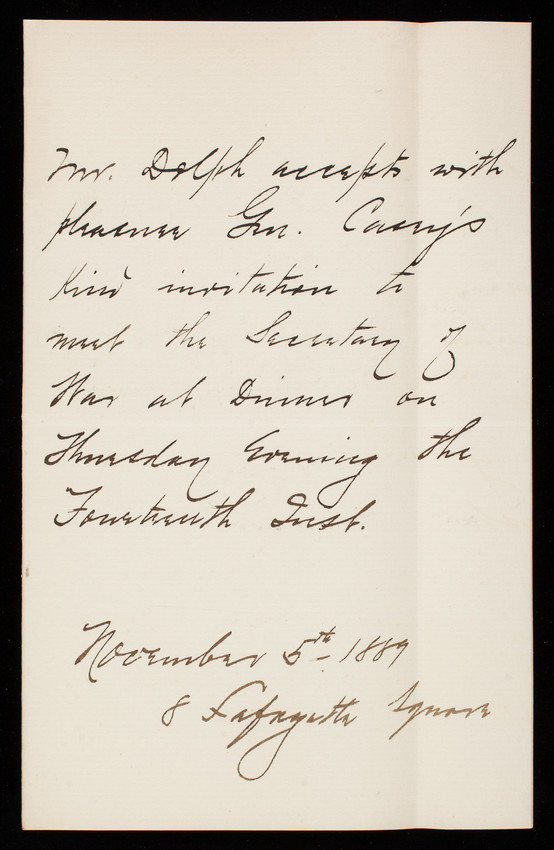 Mr. Dolph accepts with
pleasure Gen. Casey's
Kind invitation to
meet the Secretary of
War at Dinner on
Thursday Evening the
Fourteenth Inst.
November 5th 1889
8 Lafayette Square